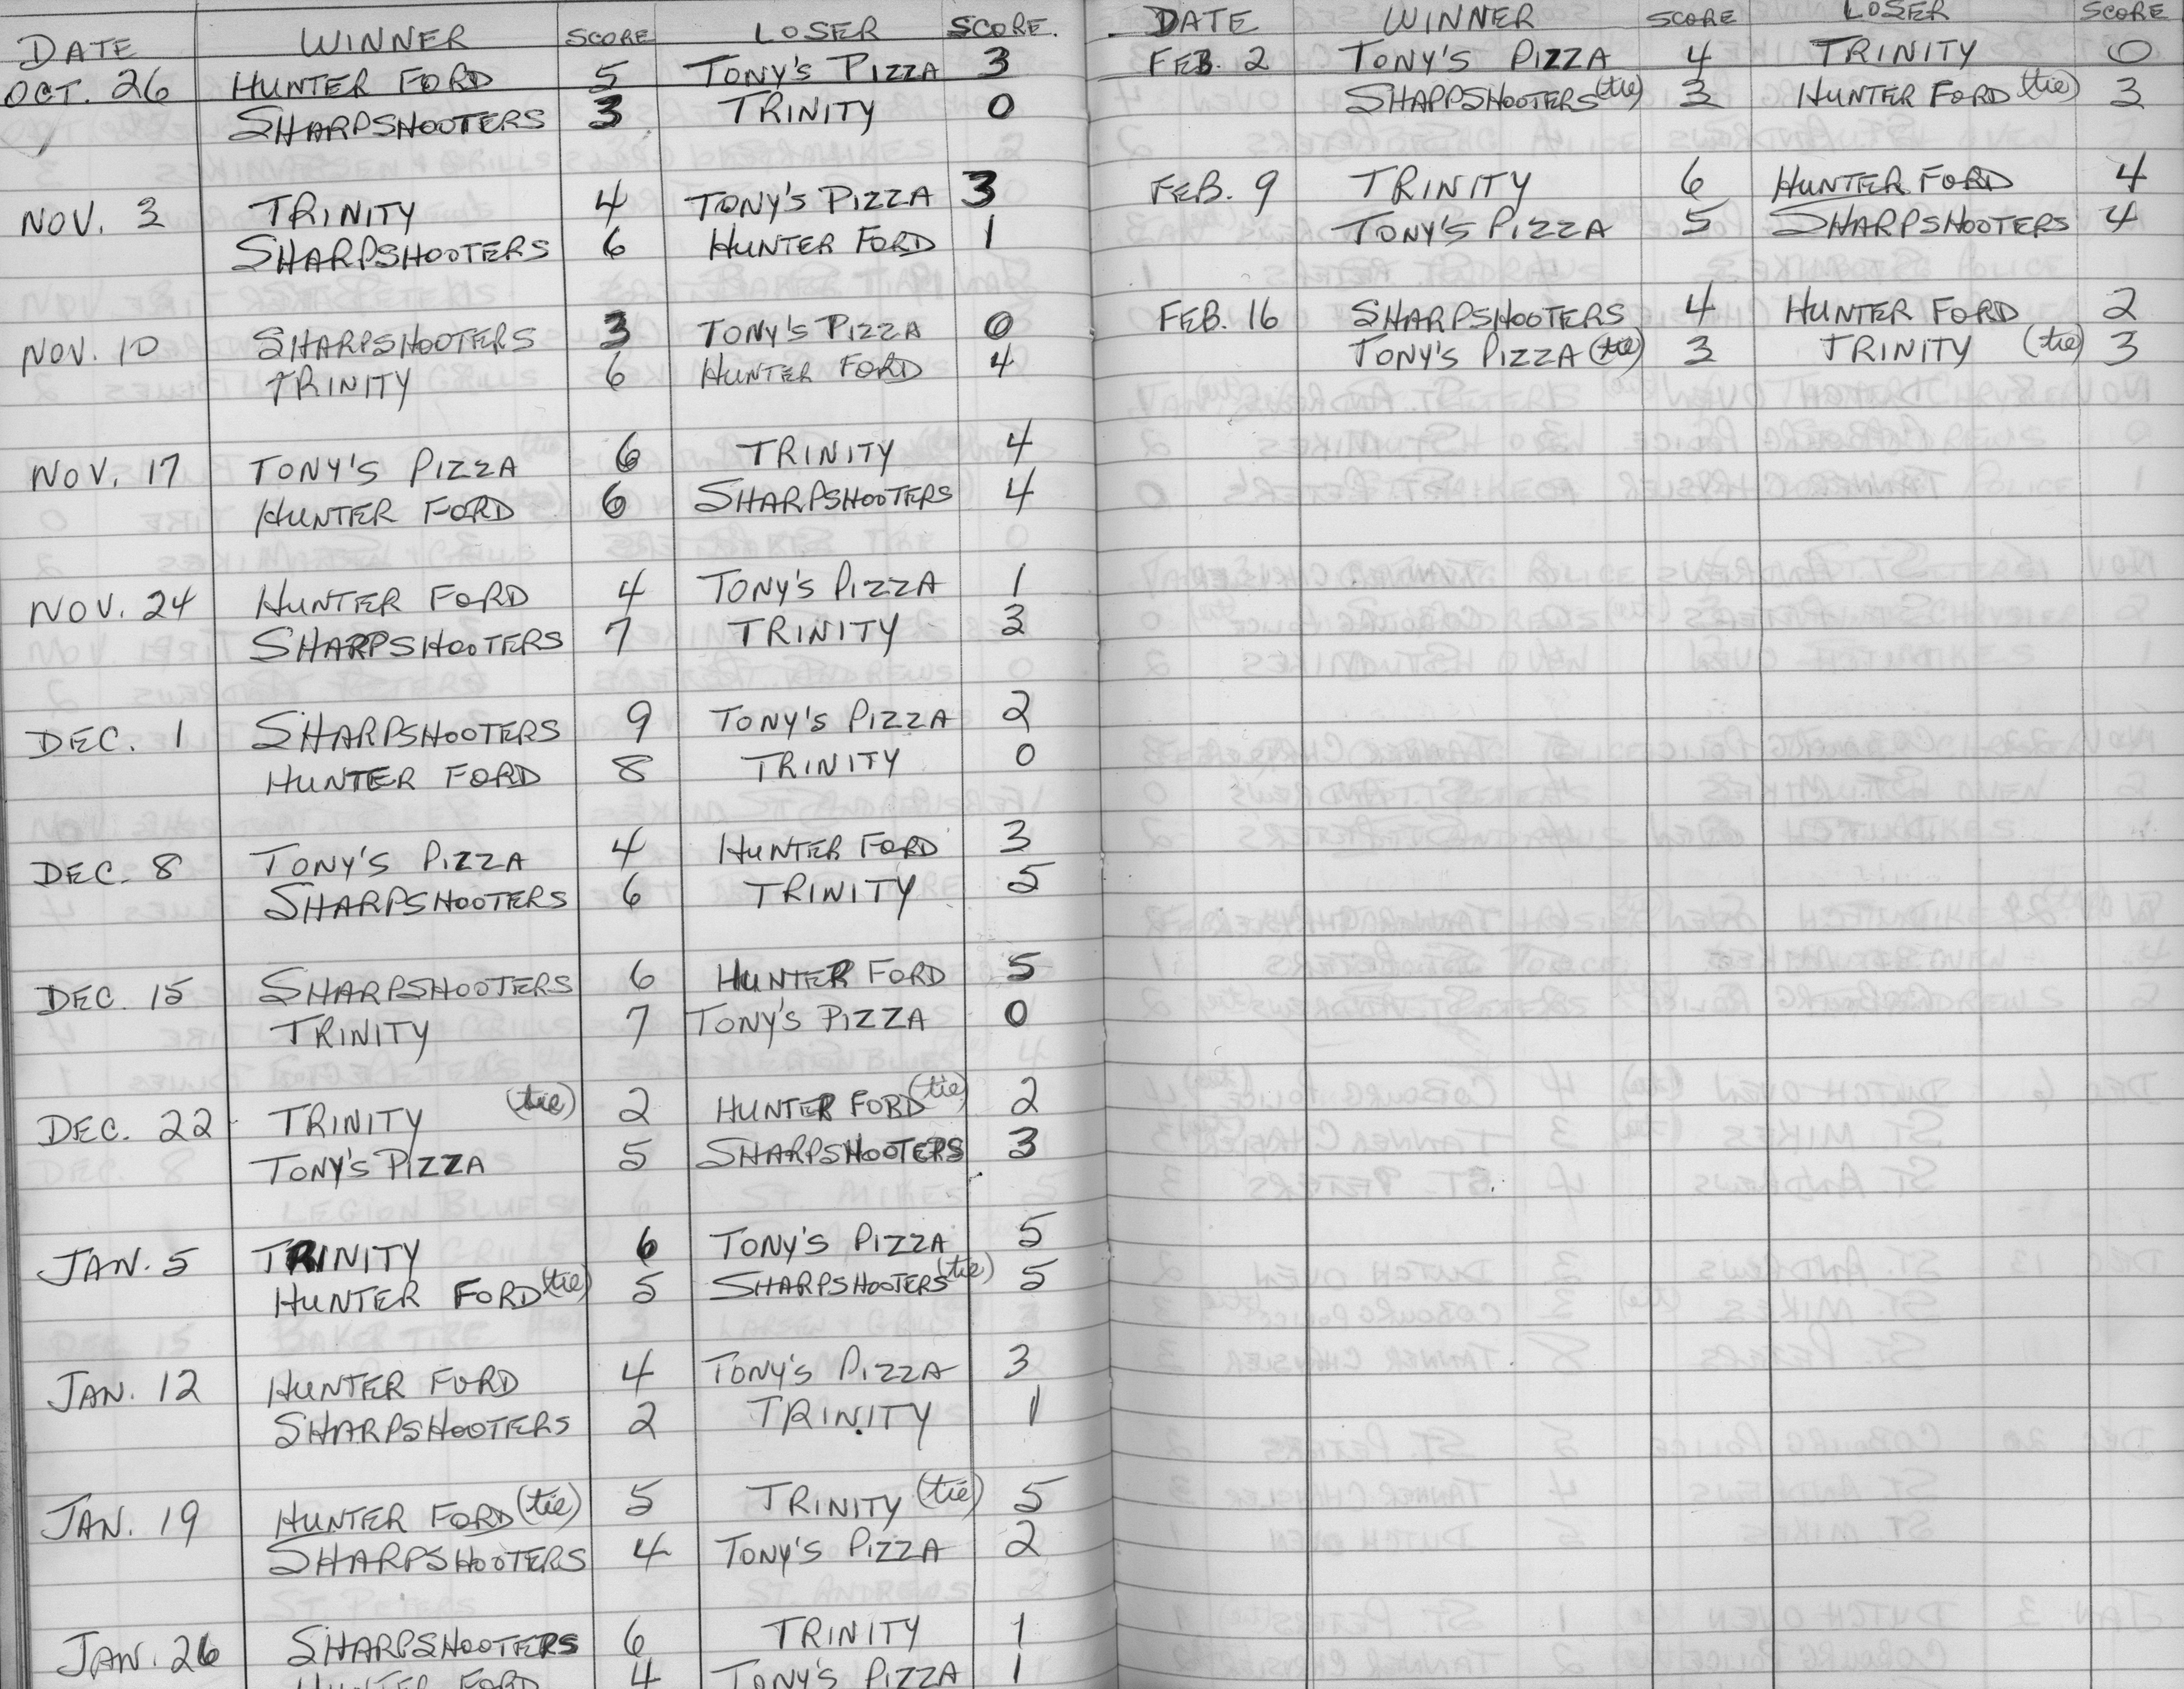 DATE WINNER SCORE LOSER SCORE.
OCT. 26 HUNTER FORD 5 TONY'S PIZZA 3
SHARPSHOOTERS 3 TRINITY 0
NOV. 3 TRINITY 4 TONY'S PIZZA 3
SHARPSHOOTERS 6 HUNTER FORD 1
NOV. 10 SHARPSHOOTERS 3 TONY'S PIZZA 0
TRINITY 6 HUNTER FORD 4
NOV. 17 TONY'S PIZZA 6 TRINITY 4
HUNTER FORD 6 SHARPSHOOTERS 4
NOV. 24 HUNTER FORD 4 TONY'S PIZZA 1
SHARPSHOOTERS 7 TRINITY 3
DEC. 1 SHARPSHOOTERS 9 TONY'S PIZZA 2
HUNTER FORD 8 TRINITY 0
DEC. 8 TONY'S PIZZA 4 HUNTER FORD 3
SHARPSHOOTERS 6 TRINITY 5
DEC. 15 SHARPSHOOTERS 6 HUNTER FORD 5
TRINITY 7 TONY'S PIZZA 0
DEC. 22 TRINITY (tie) 2 HUNTER FORD (tie) 2
TONY'S PIZZA 5 SHARPSHOOTERS 3
JAN. 5 TRINITY 6 TONY'S PIZZA 5
HUNTER FORD (tie) 5 SHARPSHOOTERS (tie) 5
JAN. 12 HUNTER FORD 4 TONY'S PIZZA 3
SHARPSHOOTERS 2 TRINITY 1
JAN. 19 HUNTER FORD (tie) 5 TRINITY (tie) 5
SHARPSHOOTERS 4 TONY'S PIZZA 2
JAN. 26 SHARPSHOOTERS 6 TRINITY 1
HUNTER FORD 4 TONY'S PIZZA 1
DATE WINNER SCORE LOSER SCORE
FEB. 2 TONY'S PIZZA 4 TRINITY 0
SHARPSHOOTERS (tie) 3 HUNTER FORD (tie) 3
FEB. 9 TRINITY 6 HUNTER FORD 4
TONY'S PIZZA 5 SHARPSHOOTERS 4
FEB. 16 SHARPSHOOTERS 4 HUNTER FORD 2
TONY'S PIZZA (tie) 3 TRINITY (tie) 3